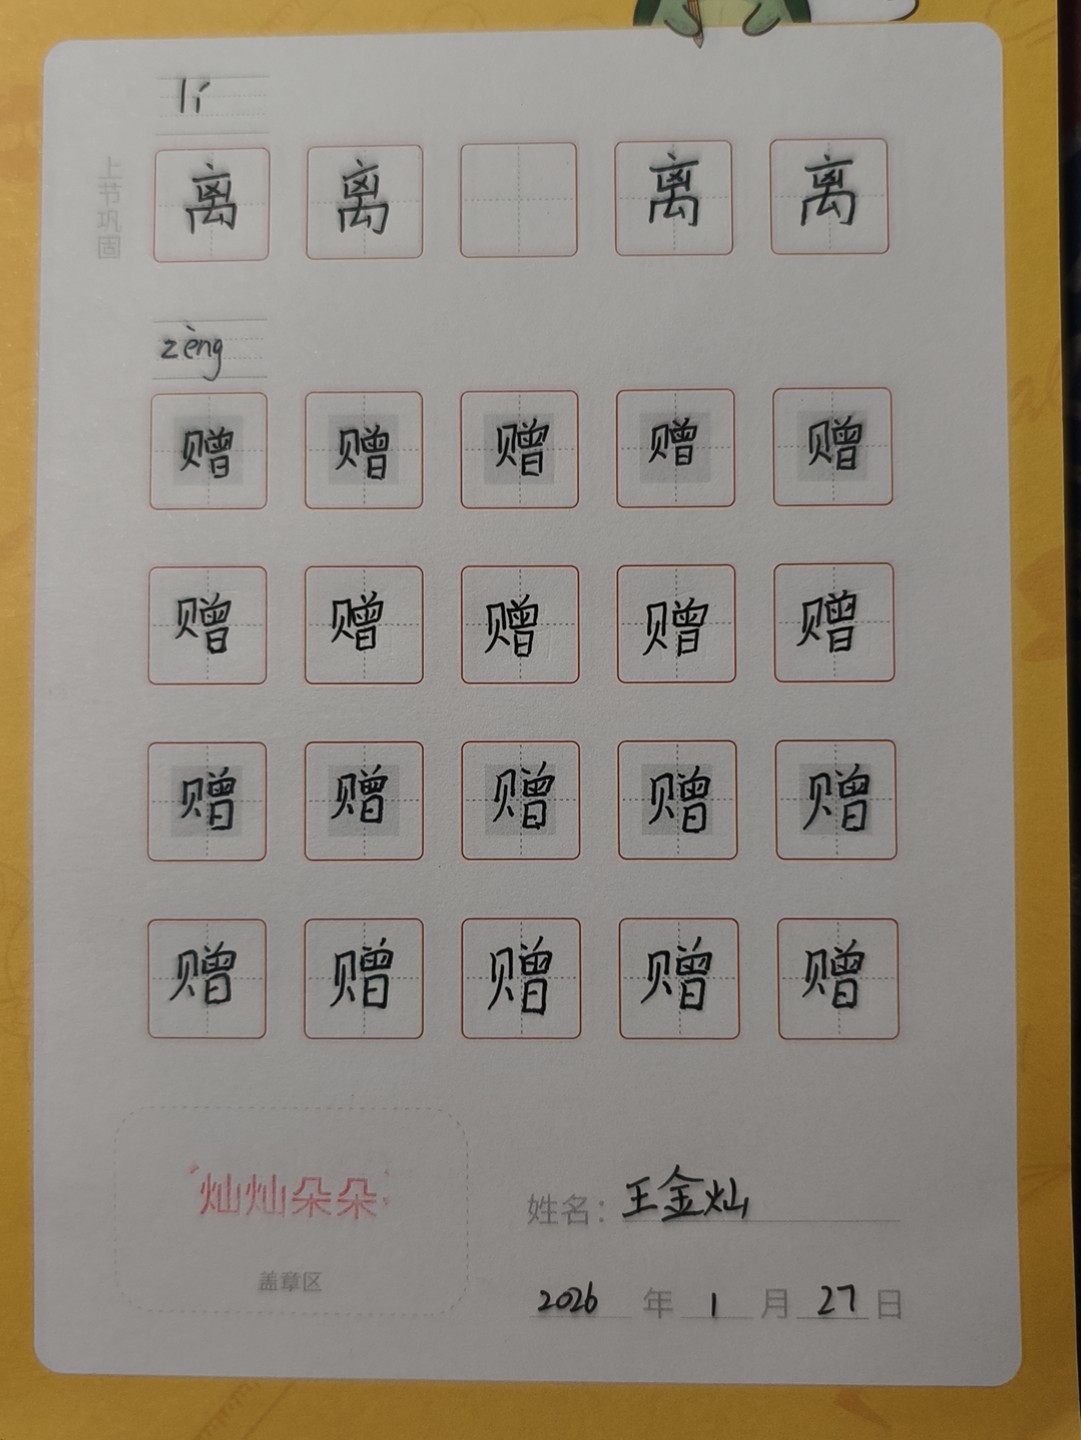 lí
上节巩固
离 离 离 离
zèng
赠 赠 赠 赠 赠
赠 赠 赠 赠 赠
赠 赠 赠 赠 赠
赠 赠 赠 赠 赠
灿灿朵朵
盖章区
姓名：王金灿
2026 年 1 月 27 日